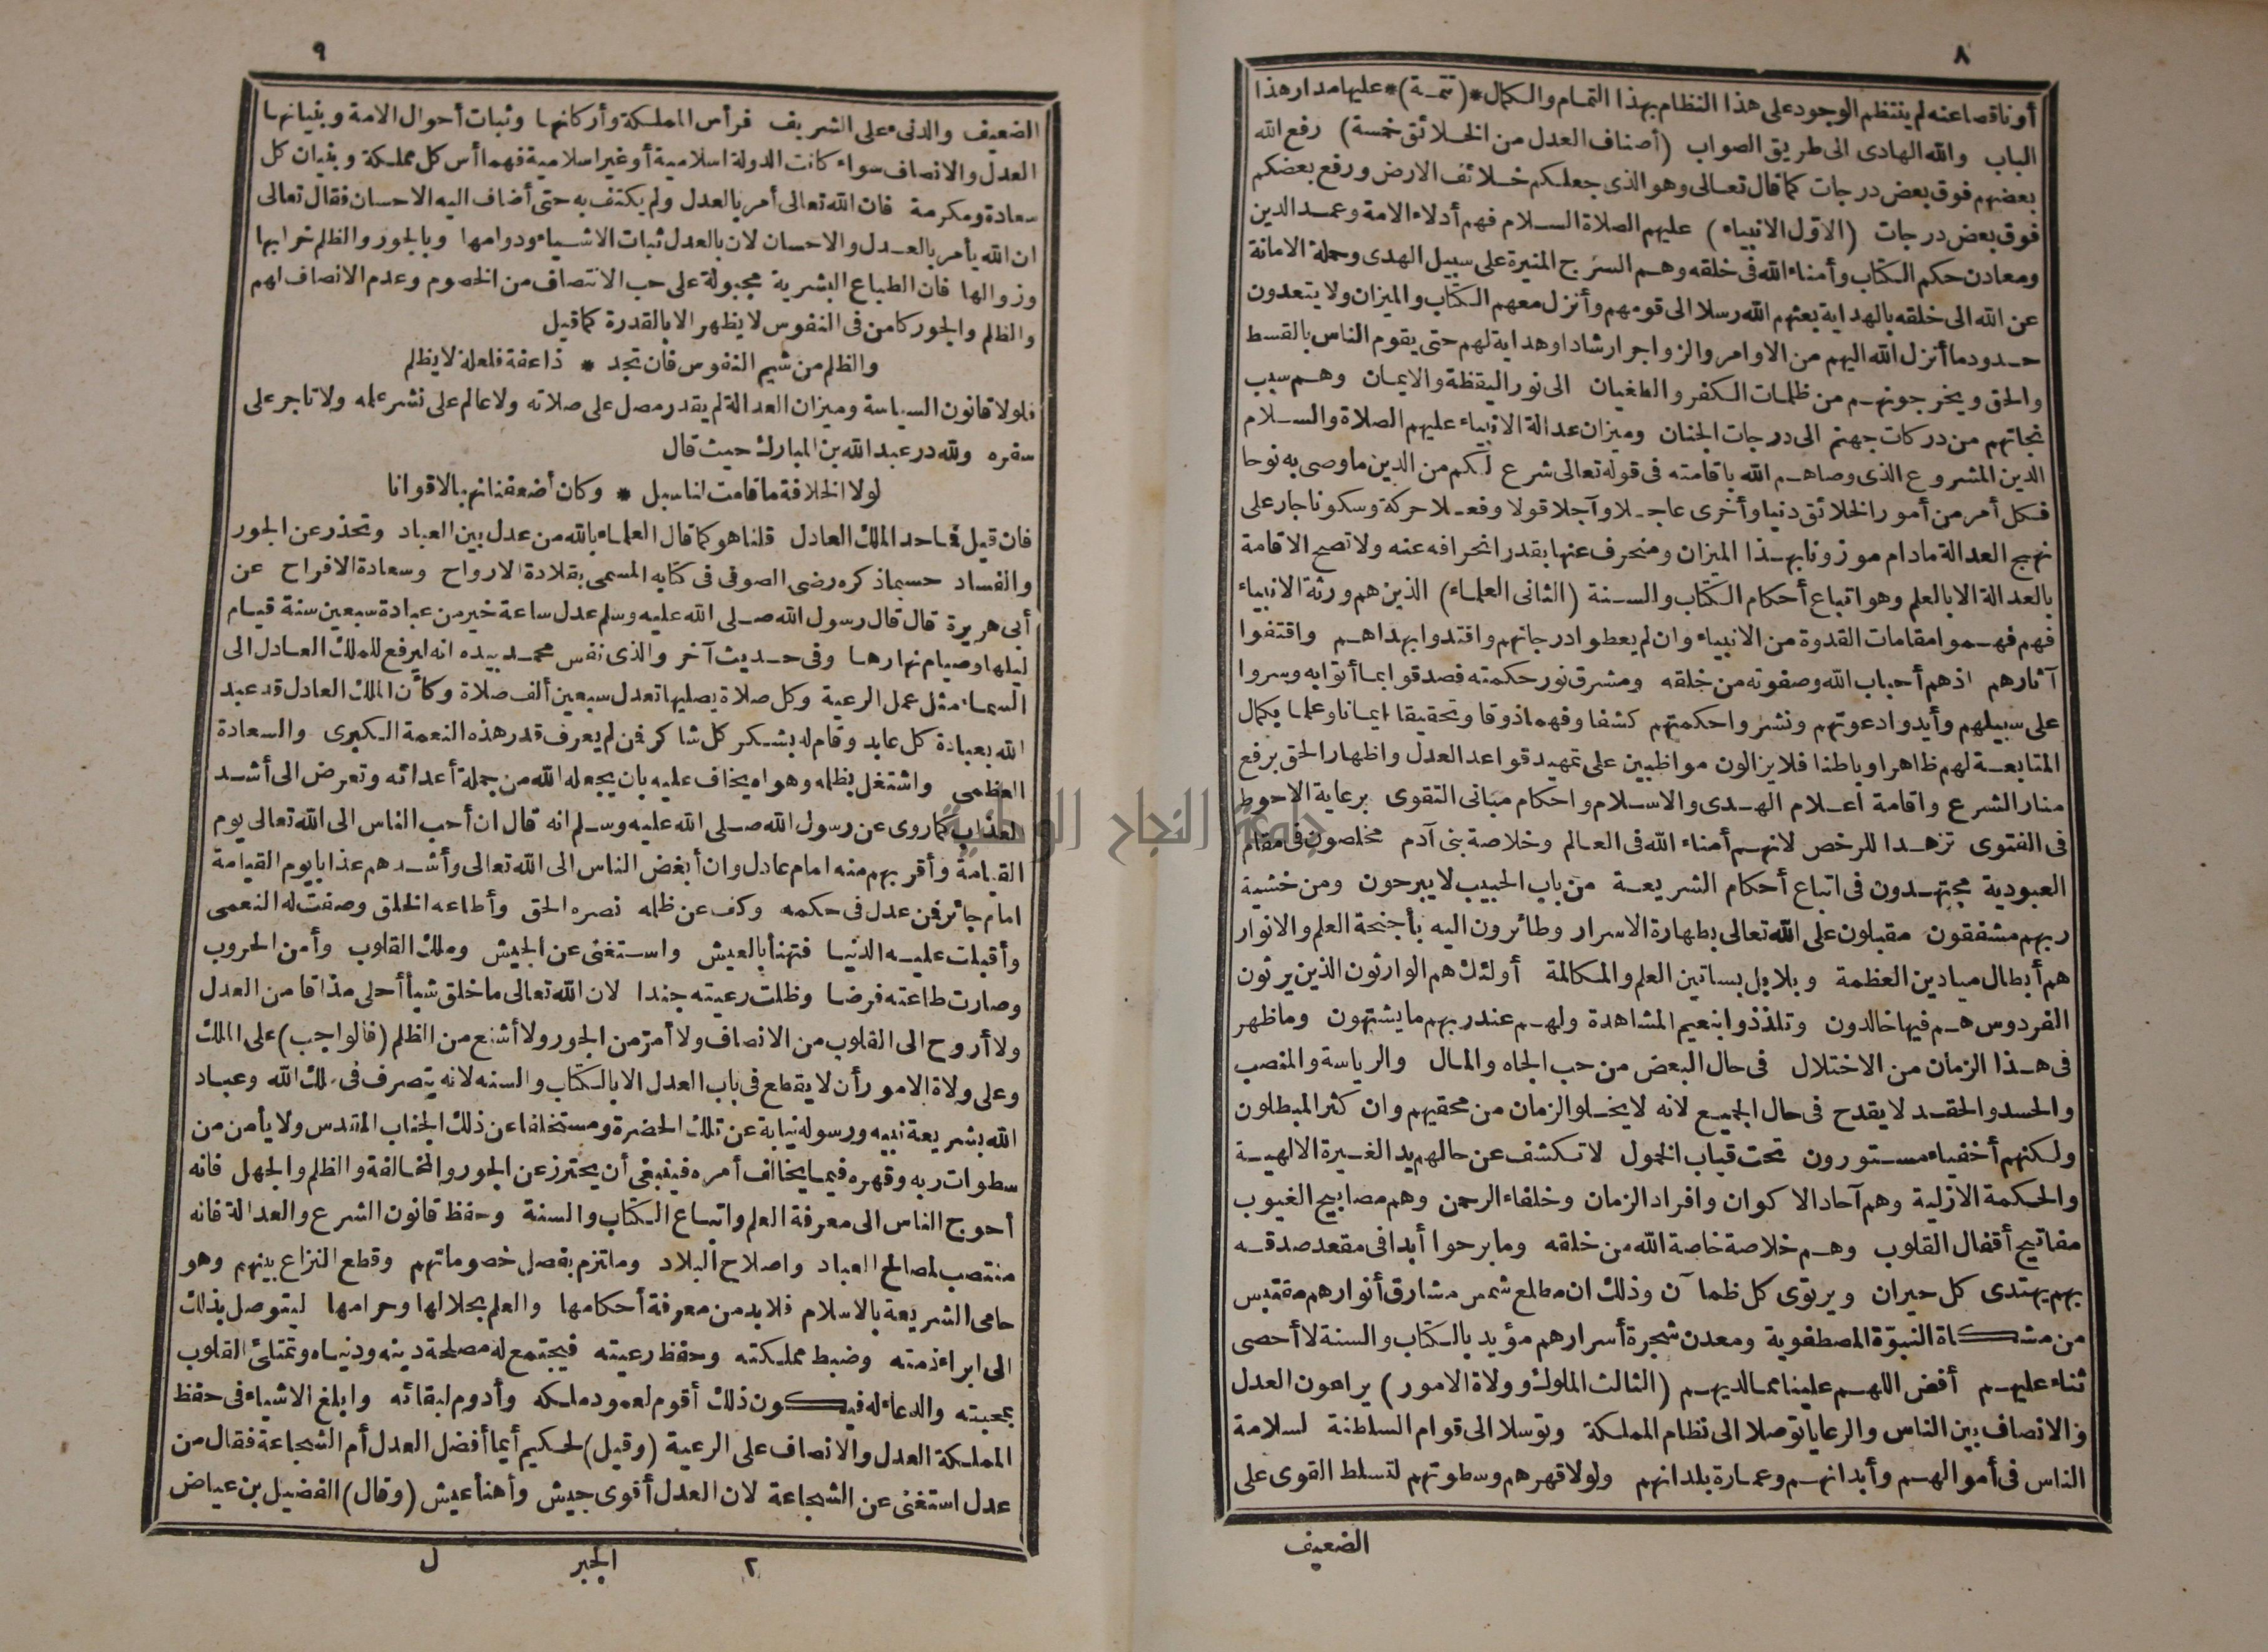 ٨
أوناقصاعنه لم ينتظم الوجود على هذا النظام بهذا التمام والكمال *(تتمة)* عليها مدار هذا
الباب والله الهادى الى طريق الصواب (أصناف العدل من الخلائق خمسة) رفع الله
بعضهم فوق بعض درجات كما قال تعالى وهو الذى جعلكم خلائف الارض ورفع بعضكم
فوق بعض درجات (الاوّل الانبياء) عليهم الصلاة السلام فهم أدلاء الامة وعمد الدين
ومعادن حكم الكتاب وأمناء الله فى خلقه وهم السرج المنيرة على سبيل الهدى وحملة الامانة
عن الله الى خلقه بالهداية بعثهم الله رسلا الى قومهم وأنزل معهم الكتاب والميزان ولا يتعدون
حدود ما أنزل الله اليهم من الاوامر والزواجر ارشادا وهداية لهم حتى يقوم الناس بالقسط
والحق ويخرجونهم من ظلمات الكفر والطغيان الى نور اليقظة والايمان وهم سبب
نجاتهم من دركات جهنم الى درجات الجنان وميزان عدالة الانبياء عليهم الصلاة والسلام
الدين المشروع الذى وصاهم الله باقامته فى قوله تعالى شرع لكم من الدين ما وصى به نوحا
فكل أمر من أمور الخلائق دنيا وأخرى عاجلا وآجلا قولا وفعلا حركة وسكونا جار على
نهج العدالة مادام موزونا بهذا الميزان ومنحرف عنها بقدر انحرافه عنه ولا تصح الاقامة
بالعدالة الا بالعلم وهو اتباع أحكام الكتاب والسنة (الثانى العلماء) الذين هم ورثة الانبياء
فهم فهموا مقامات القدوة من الانبياء وان لم يعطوا درجاتهم واقتدوا بهداهم واقتفوا
آثارهم اذ هم أحباب الله وصفوته من خلقه ومشرق نور حكمته فصدقوا بما أتوا به وسروا
على سبيلهم وأيدوا دعوتهم ونشروا حكمتهم كشفا وفهما ذوقا وتحقيقا ايمانا وعلما بكمال
المتابعة لهم ظاهرا وباطنا فلا يزالون مواظبين على تمهيد قواعد العدل واظهار الحق برفع
منار الشرع واقامة اعلام الهدى والاسلام واحكام مبانى التقوى برعاية الاحوط
فى الفتوى تزهدا للرخص لانهم أمناء الله فى العالم وخلاصة بنى آدم مخلصون فى مقام
العبودية مجتهدون فى اتباع أحكام الشريعة من باب الحبيب لا يبرحون ومن خشية
ربهم مشفقون مقبلون على الله تعالى بطهارة الاسرار وطائرون اليه بأجنحة العلم والانوار
هم أبطال ميادين العظمة وبلابل بساتين العلم والمكالمة أولئك هم الوارثون الذين يرثون
الفردوس هم فيها خالدون وتلذذوا بنعيم المشاهدة ولهم عند ربهم ما يشتهون وما ظهر
فى هذا الزمان من الاختلال فى حال البعض من حب الجاه والمال والرياسة والمنصب
والحسد والحقد لا يقدح فى حال الجميع لانه لا يخلو الزمان من محقيهم وان كثر المبطلون
ولكنهم أخفياء مستورون تحت قباب الخمول لا تكشف عن حالهم يد الغيرة الالهية
والحكمة الازلية وهم آحاد الاكوان وافراد الزمان وخلفاء الرحمن وهم مصابيح الغيوب
مفاتيح أقفال القلوب وهم خلاصة خاصة الله من خلقه وما برحوا أبدا فى مقعد صدقه
بهم يهتدى كل حيران ويرتوى كل ظمآن وذلك ان مطلع شمس مشارق أنوارهم مقتبس
من مشكاة النبوّة المصطفوية ومعدن شجرة أسرارهم مؤيد بالكتاب والسنة لا أحصى
ثناء عليهم أفض اللهم علينا مما لديهم (الثالث الملوك وولاة الامور) يراعون العدل
والانصاف بين الناس والرعايا توصلا الى نظام المملكة وتوسلا الى قوام السلطنة لسلامة
الناس فى أموالهم وأبدانهم وعمارة بلدانهم ولولا قهرهم وسطوتهم لتسلط القوى على
الضعيف
٩
الضعيف والدنىء على الشريف فرأس المملكة وأركانها وثبات أحوال الامة وبنيانها
العدل والانصاف سواء كانت الدولة اسلامية أو غير اسلامية فهما أس كل مملكة وبنيان كل
سعادة ومكرمة فان الله تعالى أمر بالعدل ولم يكتف به حتى أضاف اليه الاحسان فقال تعالى
ان الله يأمر بالعدل والاحسان لان بالعدل ثبات الاشياء ودوامها وبالجور والظلم خرابها
وزوالها فان الطباع البشرية مجبولة على حب الانتصاف من الخصوم وعدم الانصاف لهم
والظلم والجور كامن فى النفوس لا يظهر الا بالقدرة كما قيل
والظلم من شيم النفوس فان تجد * ذا عفة فلعلة لا يظلم
فلولا قانون السياسة وميزان العدالة لم يقدر مصل على صلاته ولا عالم على نشر علمه ولا تاجر على
سفره ولله در عبد الله بن المبارك حيث قال
لولا الخلافة ما قامت لنا سبل * وكان أضعفنا نهبا لاقوانا
فان قيل فما حد الملك العادل قلنا هو كما قال العلماء بالله من عدل بين العباد وتحذر عن الجور
والفساد حسبما ذكره رضى الصوفى فى كتابه المسمى بقلادة الارواح وسعادة الافراح عن
أبى هريرة قال قال رسول الله صلى الله عليه وسلم عدل ساعة خير من عبادة سبعين سنة قيام
ليلها وصيام نهارها وفى حديث آخر والذى نفس محمد بيده انه ليرفع للملك العادل الى
السماء مثل عمل الرعية وكل صلاة يصليها تعدل سبعين ألف صلاة وكأن الملك العادل قد عبد
الله بعبادة كل عابد وقام له بشكر كل شاكر فمن لم يعرف قدر هذه النعمة الكبرى والسعادة
العظمى واشتغل بظلمه وهواه يخاف عليه بان يجعله الله من جملة أعدائه وتعرض الى أشد
العذاب كما روى عن رسول الله صلى الله عليه وسلم انه قال ان أحب الناس الى الله تعالى يوم
القيامة وأقربهم منه امام عادل وان أبغض الناس الى الله تعالى وأشدهم عذابا يوم القيامة
امام جائر فمن عدل فى حكمه وكف عن ظلمه نصره الحق وأطاعه الخلق وصفت له النعمى
وأقبلت عليه الدنيا فتهنأ بالعيش واستغنى عن الجيش وملك القلوب وأمن الحروب
وصارت طاعته فرضا وظلت رعيته جندا لان الله تعالى ما خلق شيأ أحلى مذاقا من العدل
ولا أروح الى القلوب من الانصاف ولا أمرّ من الجور ولا أشنع من الظلم (فالواجب) على الملك
وعلى ولاة الامور أن لا يقطع فى باب العدل الا بالكتاب والسنه لانه يتصرف فى ملك الله وعباد
الله بشريعة نبيه ورسوله نيابة عن تلك الحضرة ومستخلفا عن ذلك الجناب المقدس ولا يأمن من
سطوات ربه وقهره فيما يخالف أمره فينبغى أن يحترز عن الجور والمخالفة والظلم والجهل فانه
أحوج الناس الى معرفة العلم واتباع الكتاب والسنة وحفظ قانون الشرع والعدالة فانه
منتصب لمصالح العباد واصلاح البلاد وملتزم بفصل خصوماتهم وقطع النزاع بينهم وهو
حامى الشريعة بالاسلام فلا بد من معرفة أحكامها والعلم بحلالها وحرامها ليتوصل بذلك
الى ابراء ذمته وضبط مملكته وحفظ رعيته فيجتمع له مصلحة دينه ودنياه وتمتلئ القلوب
بمحبته والدعاء له فيكون ذلك أقوم لعمود ملكه وأدوم لبقائه وابلغ الاشياء فى حفظ
المملكة العدل والانصاف على الرعية (وقيل) لحكيم أيما أفضل العدل أم الشجاعة فقال من
عدل استغنى عن الشجاعة لان العدل أقوى جيش وأهنأ عيش (وقال) الفضيل بن عياض
٢ الجبر ل
جامعة النجاح الوطنية